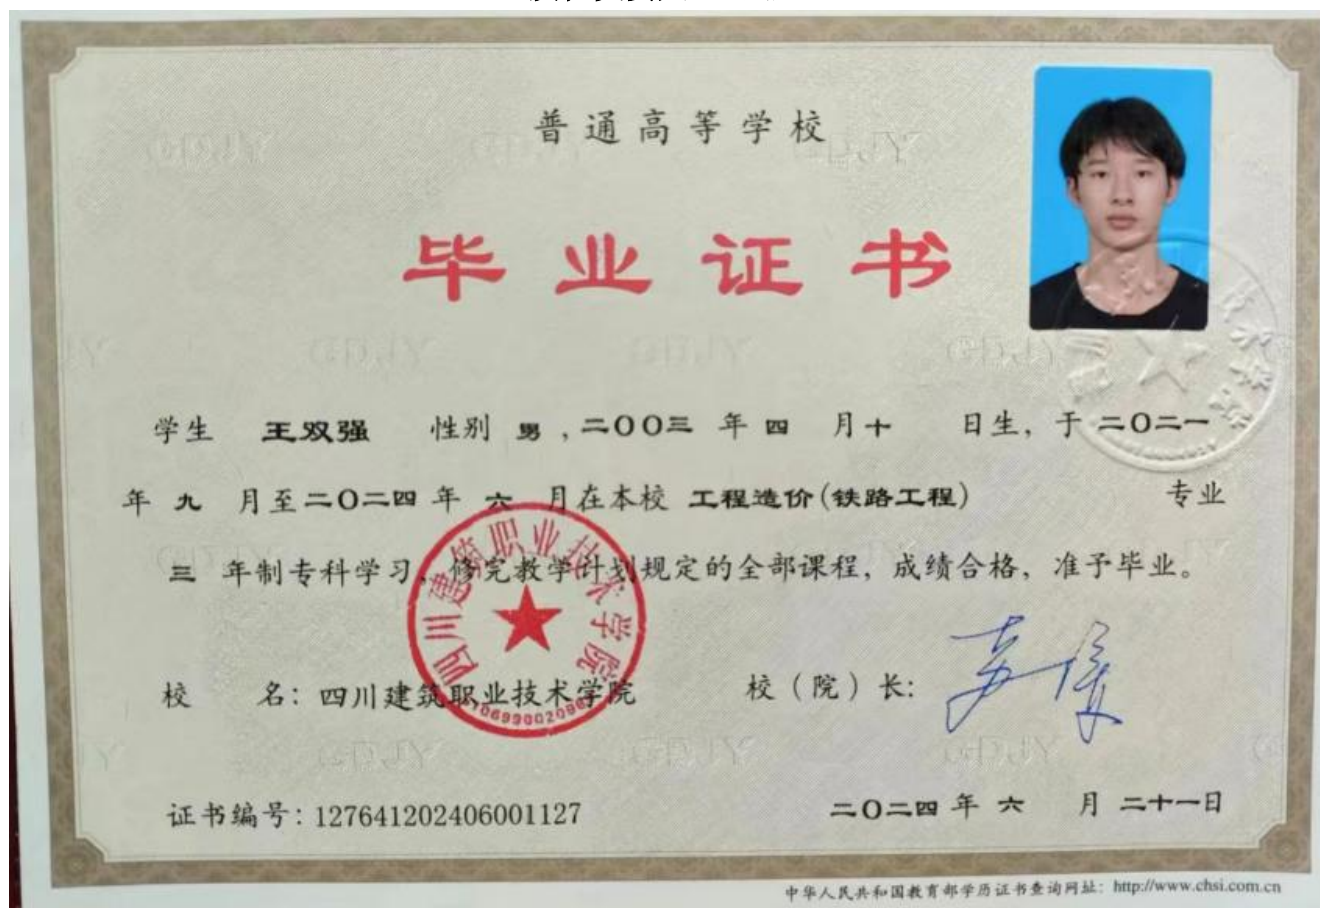 普通高等学校
毕业证书
学生 王双强 性别 男，二〇〇三 年 四 月 十 日生，于 二〇二一
年 九 月至 二〇二四 年 六 月在本校 工程造价(铁路工程) 专业
三 年制专科学习，修完教学计划规定的全部课程，成绩合格，准予毕业。
四川建筑职业技术学院
校 名：四川建筑职业技术学院 校（院）长：
证书编号：127641202406001127 二〇二四 年 六 月 二十一日
中华人民共和国教育部学历证书查询网址：http://www.chsi.com.cn